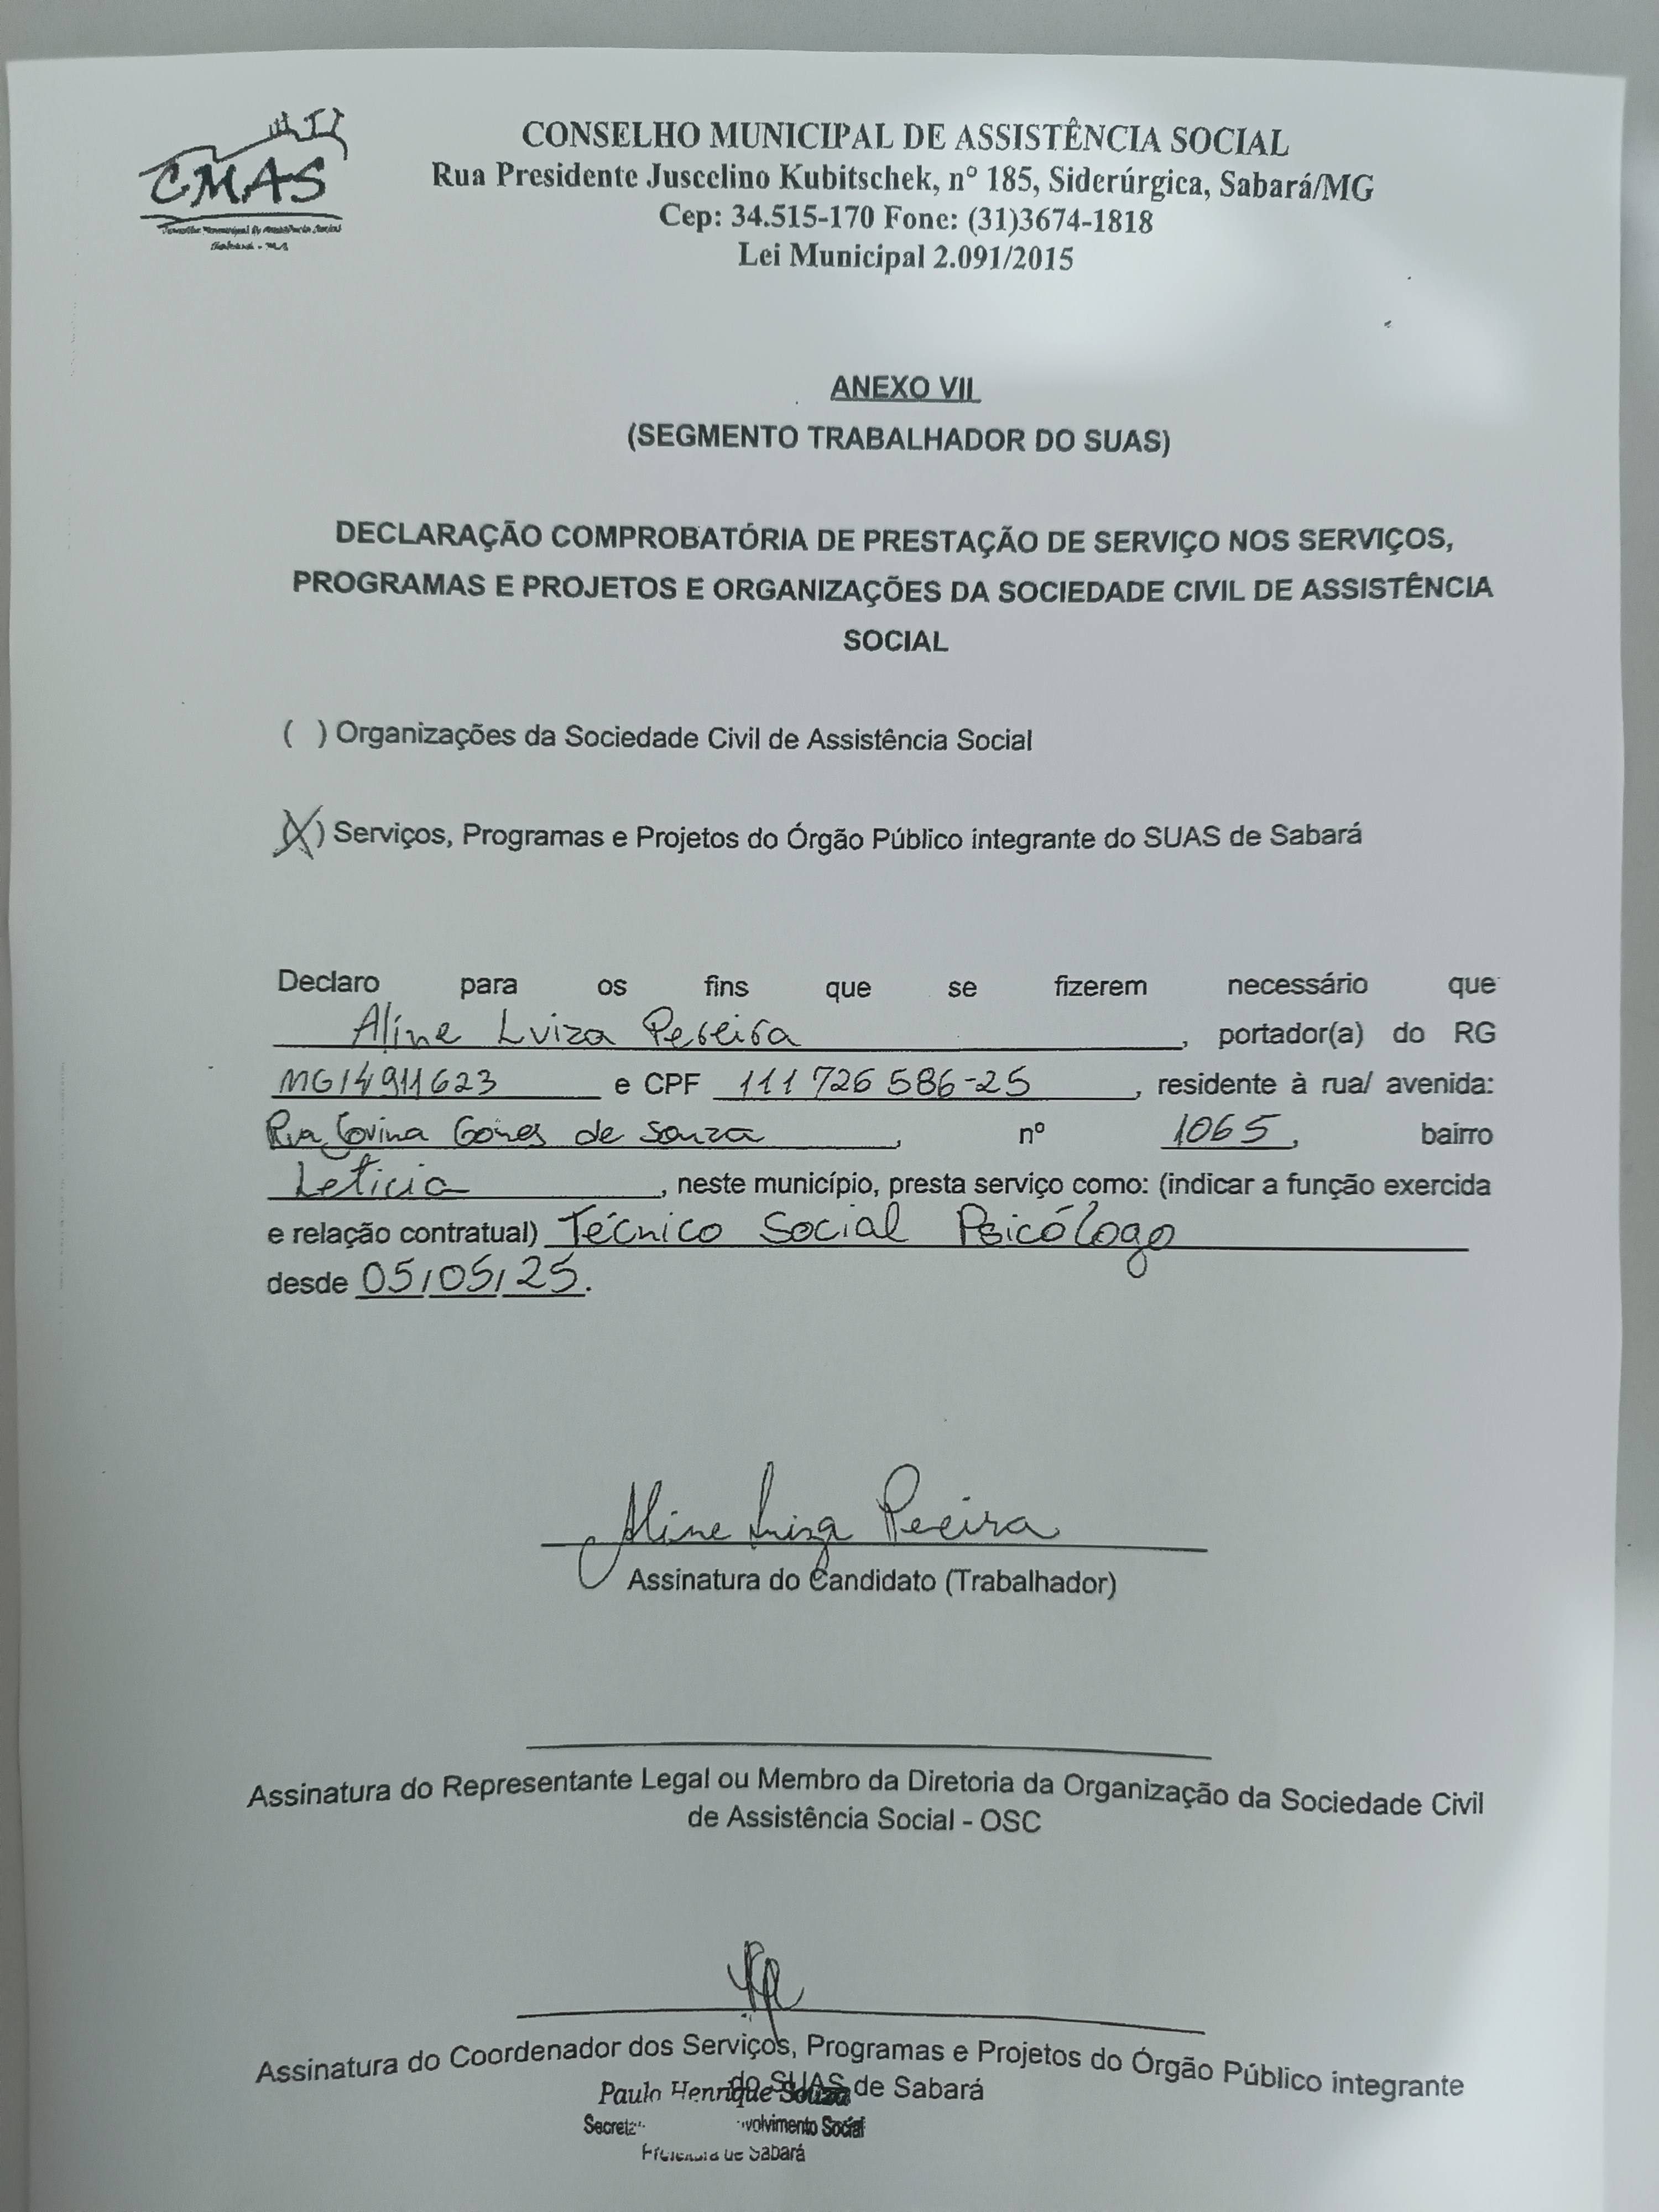 CMAS
CONSELHO MUNICIPAL DE ASSISTÊNCIA SOCIAL
Rua Presidente Juscelino Kubitschek, nº 185, Siderúrgica, Sabará/MG
Cep: 34.515-170 Fone: (31)3674-1818
Lei Municipal 2.091/2015
ANEXO VII
(SEGMENTO TRABALHADOR DO SUAS)
DECLARAÇÃO COMPROBATÓRIA DE PRESTAÇÃO DE SERVIÇO NOS SERVIÇOS,
PROGRAMAS E PROJETOS E ORGANIZAÇÕES DA SOCIEDADE CIVIL DE ASSISTÊNCIA
SOCIAL
( ) Organizações da Sociedade Civil de Assistência Social
(X) Serviços, Programas e Projetos do Órgão Público integrante do SUAS de Sabará
Declaro para os fins que se fizerem necessário que
Aline Luiza Pereira, portador(a) do RG
MG14911623 e CPF 111 726 586-25, residente à rua/ avenida:
Rua Gomes de Souza, nº 1065, bairro
Leticia, neste município, presta serviço como: (indicar a função exercida
e relação contratual) Técnico Social Psicólogo
desde 05/05/25.
Aline Luiza Pereira
Assinatura do Candidato (Trabalhador)
Assinatura do Representante Legal ou Membro da Diretoria da Organização da Sociedade Civil
de Assistência Social - OSC
Assinatura do Coordenador dos Serviços, Programas e Projetos do Órgão Público integrante
do SUAS de Sabará
Paulo Henrique Souza
Social
de Sabará